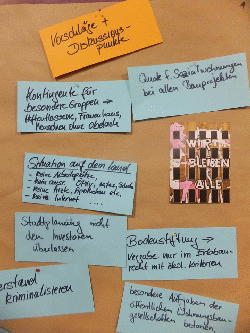 Vorschläge &
Diskussions-
punkte
Kontingente für
besondere Gruppen →
Haftentlassene, Frauenhaus,
Menschen ohne Obdach
Quote f. Sozialwohnungen
bei allen Bauprojekten
Situation auf dem Land
- keine Arbeitsplätze,
- keine Ärzte, Apotheken etc.
- keine Internet ....
WIR
BLEIBEN
ALLE
Stadtplanung nicht
den Investoren
überlassen
Bodenstiftung →
Vergabe nur im Erbbau-
recht mit ökol. Kriterien
kriminalisieren
besondere Aufgaben der
öffentlichen Wohnungsbau-
gesellschaften betonen